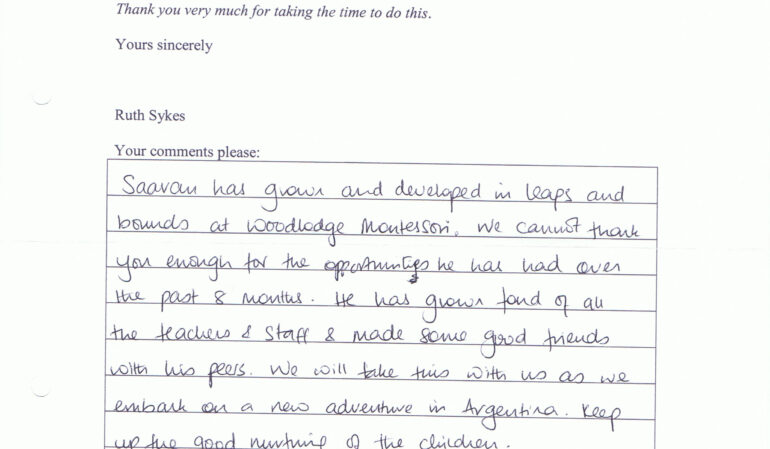 Thank you very much for taking the time to do this.
Yours sincerely
Ruth Sykes
Your comments please:
Saavan has grown and developed in leaps and
bounds at Woodlodge Montessori. We cannot thank
you enough for the opportunities he has had over
the past 8 months. He has grown fond of all
the teachers & staff & made some good friends
with his peers. We will take this with us as we
embark on a new adventure in Argentina. Keep
up the good nurturing of the children.